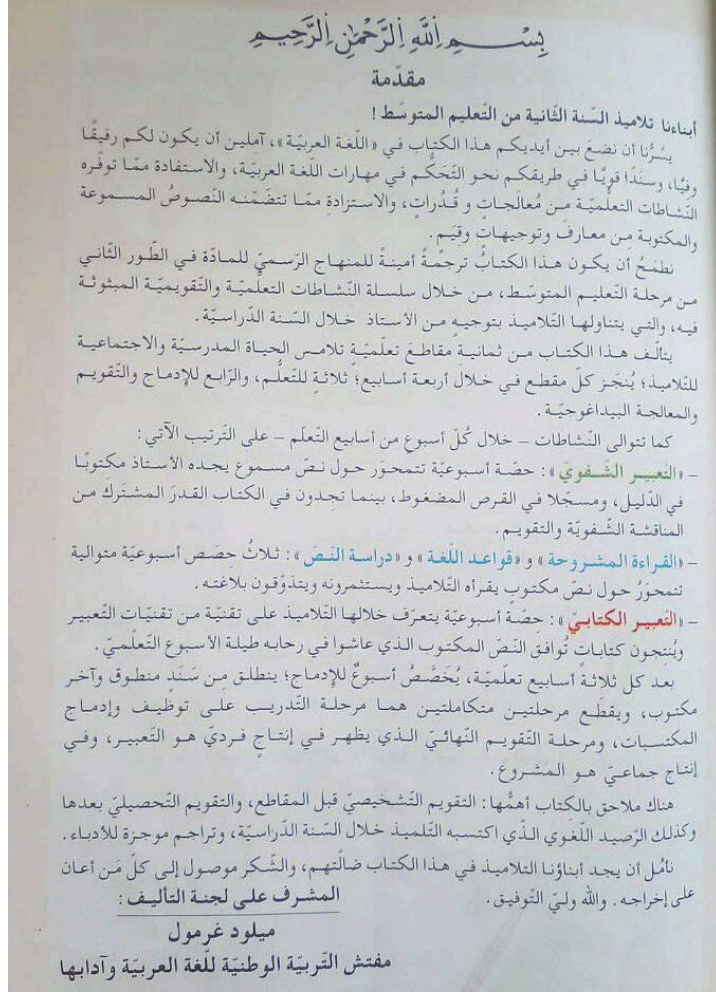 بِسْــــمِ اِ۬للَّهِ اِ۬لرَّحْمَٰنِ اِ۬لرَّحِيمِ
مقدّمة
أبناءنا تلاميذ السّنة الثّانية من التّعليم المتوسّط !
يسُرُّنا أن نضعَ بين أيديكم هذا الكتاب في «اللّغة العربيّة»، آملين أن يكون لكم رفيقًا
وفيًّا، وسندًا قويًّا في طريقكم نحو التّحَكُّم في مهارات اللّغة العربيّة، والاستفادة ممّا توفّره
النّشاطات التعلّميّة من مُعالجاتٍ و قُدُراتٍ، والاستزادةِ ممّا تتضَمّنه النّصوصُ المسموعة
والمكتوبة مِن معارفَ وتوجيهاتٍ وقيَم.
نطمَحُ أن يكون هذا الكتابُ ترجمَةً أمينةً للمنهاج الرّسميِّ للمادّة في الطّور الثّاني
من مرحلة التّعليم المتوسّط، من خلال سلسلة النّشاطات التعلّميّة والتّقويميّة المبثوثة
فيه، والتي يتناولها التّلاميذ بتوجيهٍ من الأستاذ خلال السّنة الدّراسيّة.
يتألّف هذا الكتاب من ثمانية مقاطعَ تعلّميّةٍ تلامس الحياة المدرسيّة والاجتماعية
للتّلاميذ؛ يُنجَز كلّ مقطع في خلال أربعة أسابيع؛ ثلاثةٍ للتّعلُّم، والرّابع للإدماج والتّقويم
والمعالجة البيداغوجيّة.
كما تتوالى النّشاطات – خلال كُلّ أسبوعٍ من أسابيع التّعلّم – على التّرتيب الآتي:
– «التّعبير الشّفويّ»: حصّة أسبوعيّة تتمحوَر حول نصّ مسموع يجده الأستاذ مكتوبًا
في الدّليل، ومسجّلا في القرص المضغوط، بينما تجدون في الكتاب القدرَ المشترَكَ من
المناقشة الشّفويّة والتقويم.
– «القراءة المشروحة» و «قواعد اللّغة» و «دراسة النّصّ»: ثلاثُ حِصَص أسبوعيّة متوالية
تتمحوَرُ حول نصّ مكتوبٍ يقرأه التّلاميذ ويستثمرونه ويتذوّقون بلاغته.
– «التّعبير الكتابيّ»: حِصّة أسبوعيّة يتعرّف خلالها التّلاميذ على تقنيّة من تقنيّات التّعبير
ويُنتجون كتاباتٍ تُوافق النّصّ المكتوب الذي عاشوا في رحابه طيلة الأسبوع التّعلّميّ.
بعد كل ثلاثة أسابيع تعلّميّة، يُخَصَّصُ أسبوعٌ للإدماج؛ ينطلق مِن سَنَدٍ منطوق وآخر
مكتوب، ويقطَع مرحلتين متكاملتين هما مرحلة التّدريب على توظيف وإدماج
المكتسبات، ومرحلة التّقويم النّهائيّ الذي يظهر في إنتاجٍ فرديّ هو التّعبير، وفي
إنتاج جماعيّ هو المشروع.
هناك ملاحق بالكتاب أهمُّها: التقويم التّشخيصيّ قبل المقاطع، والتقويم التّحصيليّ بعدها
وكذلك الرّصيد اللّغوي الذّي اكتسبه التّلميذ خلال السّنة الدّراسيّة، وتراجم موجزة للأدباء.
نأمُل أن يجد أبناؤنا التلاميذ في هذا الكتاب ضالّتهم، والشّكر موصول إلى كلّ مَن أعان
على إخراجه. والله وليّ التّوفيق.
المشرف على لجنة التأليف:
ميلود غرمول
مفتش التّربيّة الوطنيّة للّغة العربيّة وآدابها